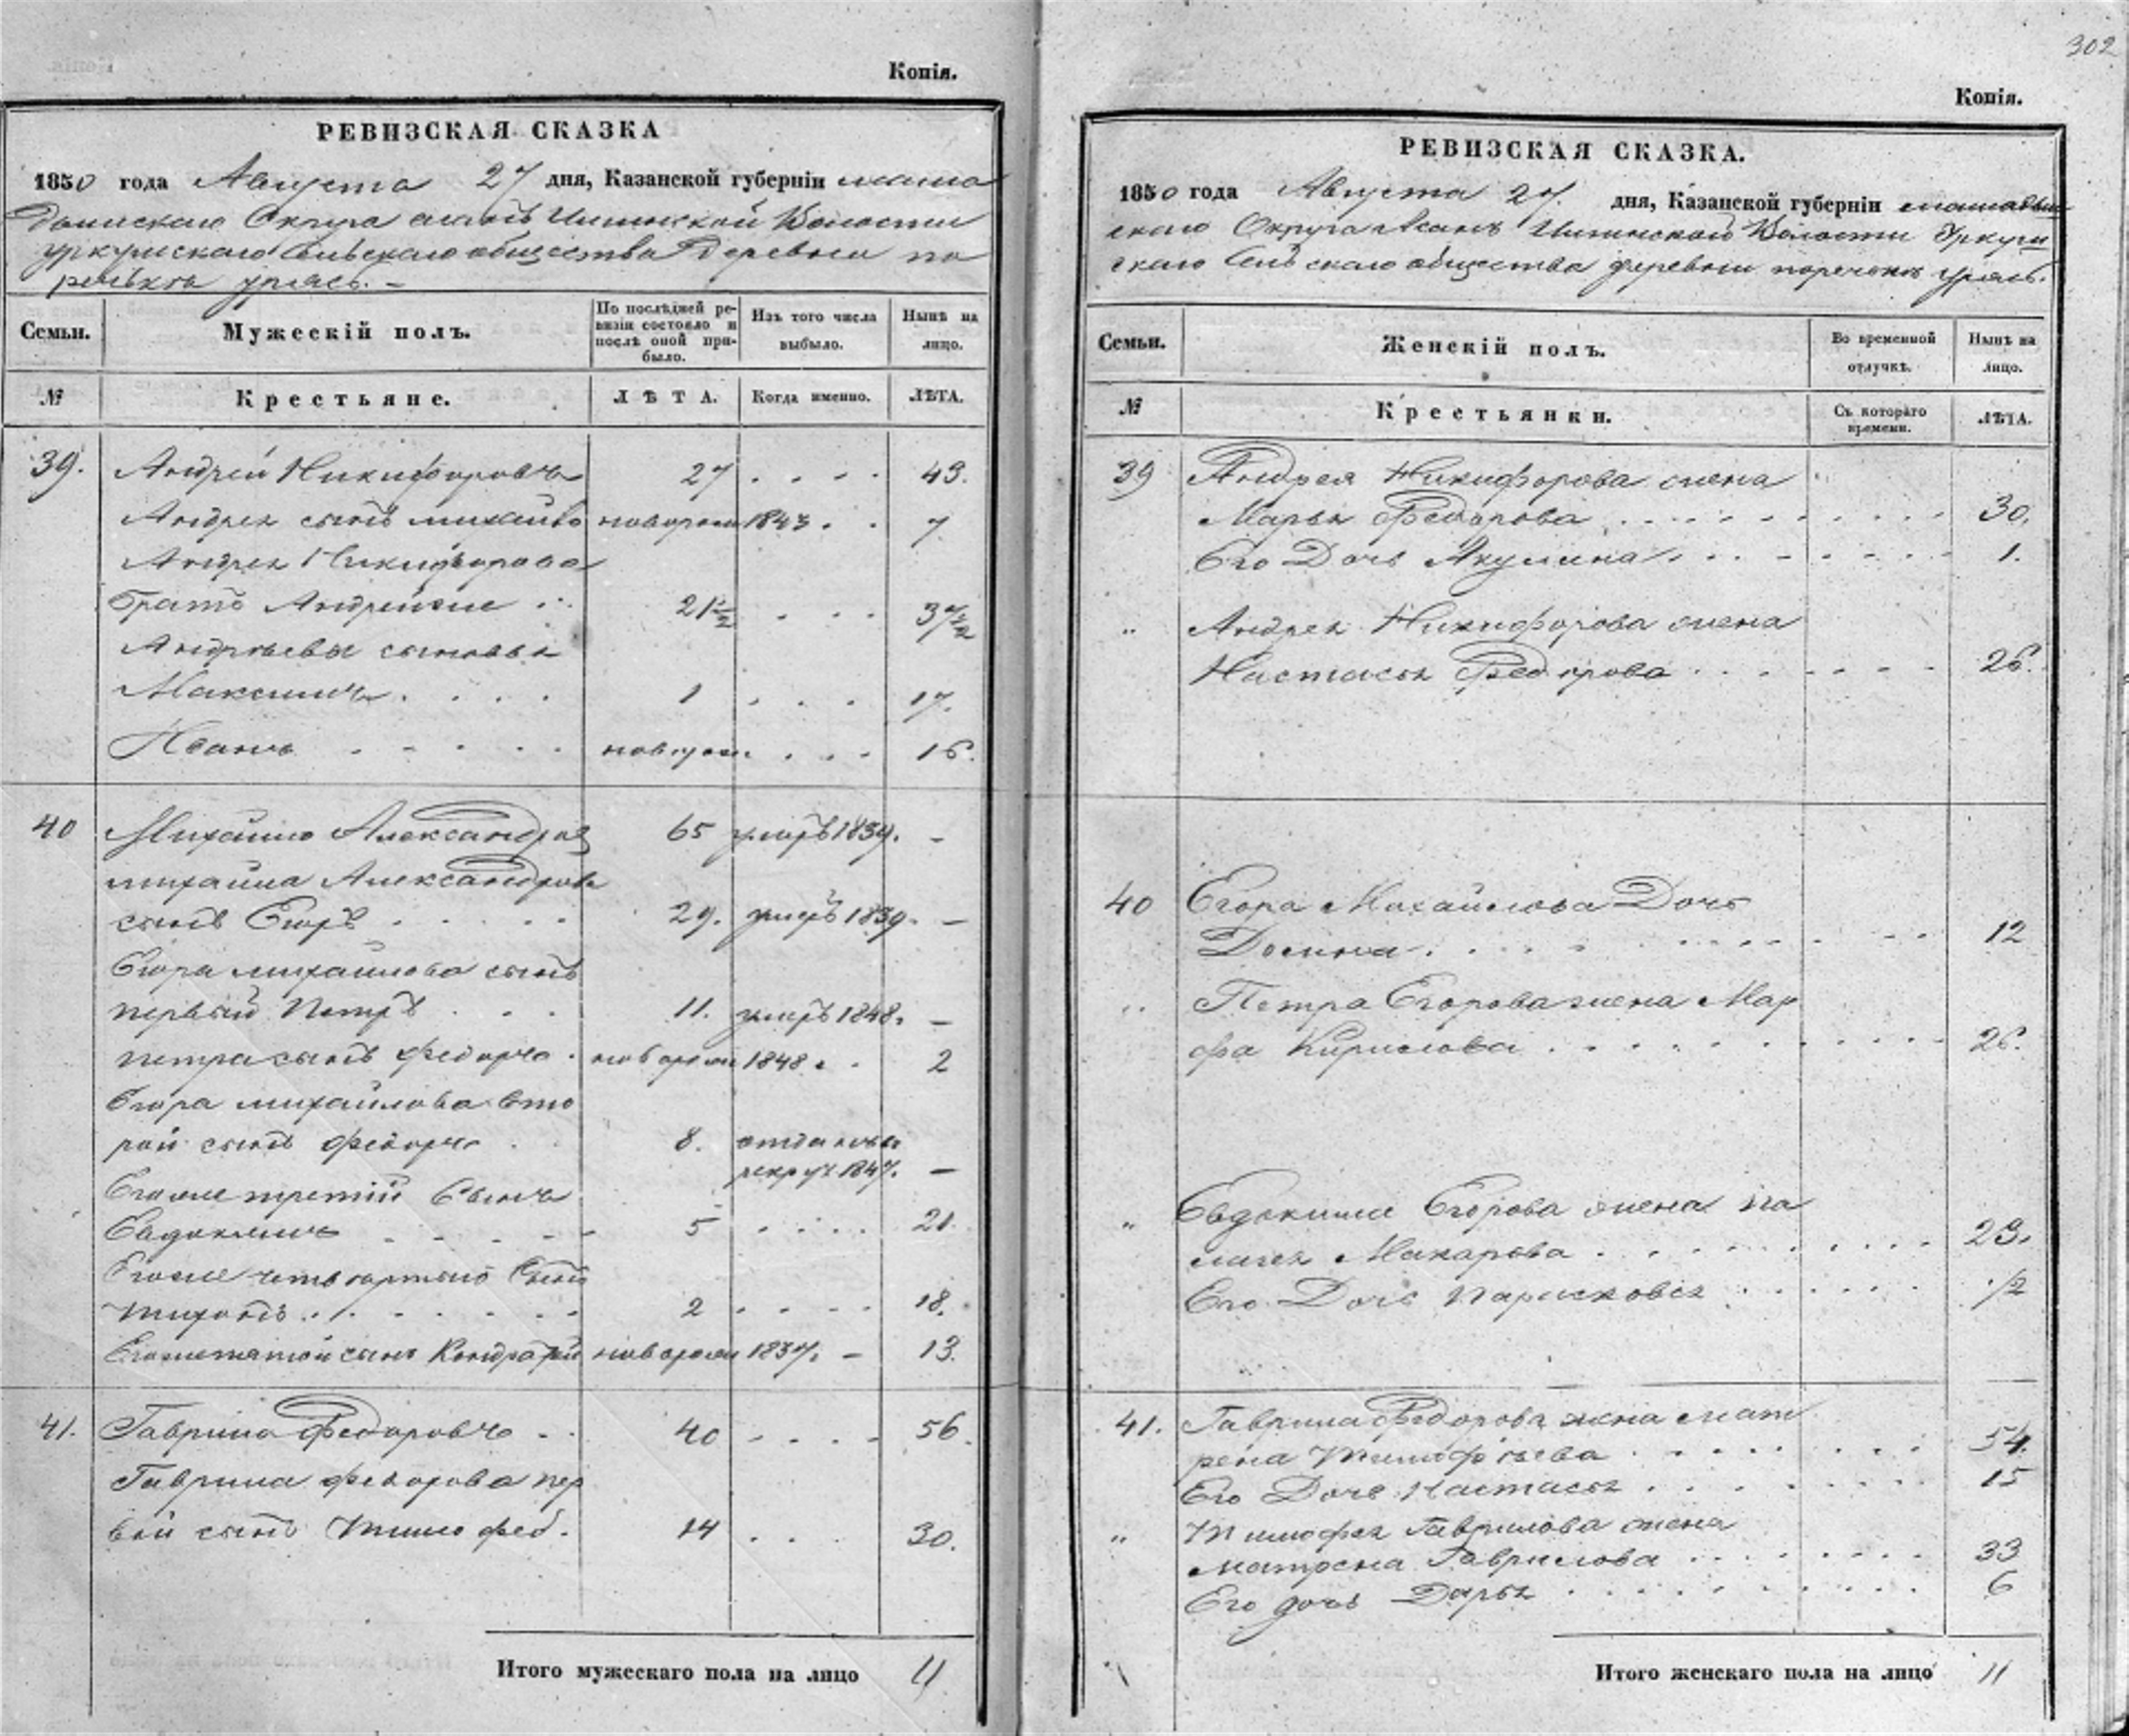 302
Копія.
РЕВИЗСКАЯ СКАЗКА
1850 года Августа 27 дня, Казанской губерніи мама
дышскаго Округа Волости
уркушскаго Сельскаго общества Деревни по
речькъ уразъ.
Семьи.
Мужескій полъ.
По послѣдней ре-
визіи состояло и
послѣ оной при-
было.
Изъ того числа
выбыло.
Нынѣ на
лицо.
№
Крестьяне.
ЛѢТА.
Когда именно.
ЛѢТА.
39. Андрей Никифоровъ 27 . . . . 43.
Андрея сынъ михайло новорож 1843 . . 7
Андрея Никифорова
братъ Андрей же . . 21 1/2 . . . 37 1/2
Андреевы сыновья
Максимъ . . . . 1 . . . 17.
Иванъ . . . . . новорож. . . . 16.
40 Михайло Александров 65 умеръ 1839. -
михайла Александрова
сынъ Егоръ . . . . . 29. умеръ 1839. -
Егора михайлова сынъ
первый Петръ . . . 11. умеръ 1848. -
петра сынъ Федоръ . новорож 1848. . 2
Егора михайлова вто
рой сынъ Федоръ . 8. отданъ въ
рекруты 1847. -
Егоже третій Сынъ
Евдокимъ - - - - - 5 . . . . 21.
Егоже четвертый Сынъ
тихонъ . . . . . . . 2 . . . . 18.
Егоже пятой сынъ Кондратій новорож 1837. - 13.
41. Гаврило Федоровъ . . 40 . . . . 56.
Гаврила федорова пер
вой сынъ Тимофей. 14 . . . 30.
Итого мужескаго пола на лицо 11
Копія.
РЕВИЗСКАЯ СКАЗКА.
1850 года Августа 27. дня, Казанской губерніи мамадыш
скаго Округа Волости Уркуш
скаго Сельскаго общества деревни поречькъ уразъ.
Семьи.
Женскій полъ.
Во временной
отлучкѣ.
Нынѣ на
лицо.
№
Крестьянки.
Съ котораго
времени.
ЛѢТА.
39 Андрея Никифорова жена
Марья Федорова . . . . . . . . 30.
Его Дочь Акулина . . . . . . . 1.
" Андрея Никифорова жена
Настасья Федорова . . . . . . . 26.
40 Егора Михайлова Дочь
Домна . . . . . . . . . 12
" Петра Егорова жена Мар
фа Кирилова . . . . . . . . . 26.
" Евдокима Егорова жена па
лагея Макарова . . . . . . . . . 23.
Его Дочь парасковья . . . . . 1/2
41. Гаврила Федорова жена мат
рена Тимофеева . . . . . . . 54.
Его Дочь Настасья . . . . . . . 15
" Тимофея Гаврилова жена
матрена Гаврилова . . . . . . . 33
Его дочь Дарья . . . . . . . . 6
Итого женскаго пола на лицо 11